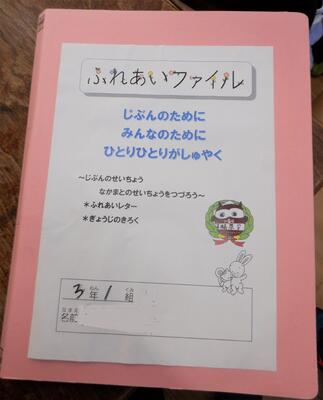 ふれあいファイル
じぶんのために
みんなのために
ひとりひとりがしゅやく
～じぶんのせいちょう
なかまとのせいちょうをつづろう～
＊ふれあいレター
＊ぎょうじのきろく
3年1組
ねん くみ
なまえ
名前